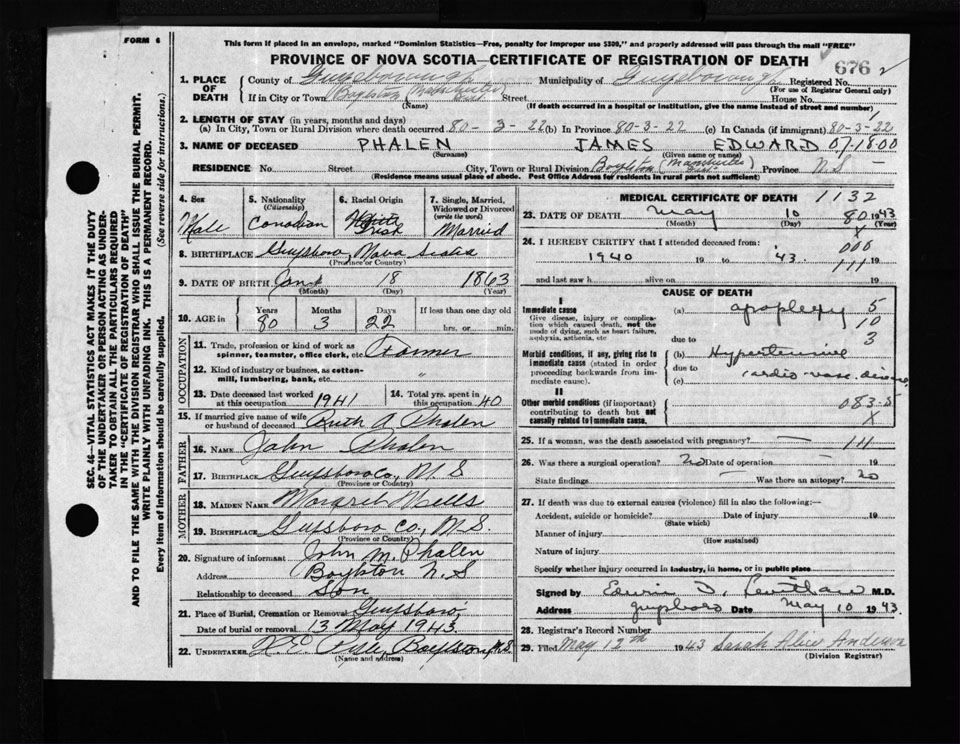 FORM 6
This form if placed in an envelope, marked "Dominion Statistics—Free, penalty for improper use $300," and properly addressed will pass through the mail "FREE"
PROVINCE OF NOVA SCOTIA—CERTIFICATE OF REGISTRATION OF DEATH
676
1. PLACE OF DEATH County of Guysborough Municipality of Guysborough Registered No.
(For use of Registrar General only)
If in City or Town Boylston (Manchester) Street House No.
(Name) (If death occurred in a hospital or institution, give the name instead of street and number)
2. LENGTH OF STAY (in years, months and days)
(a) In City, Town or Rural Division where death occurred 80-3-22 (b) In Province 80-3-22 (c) In Canada (if immigrant) 80-3-22
3. NAME OF DECEASED PHALEN JAMES EDWARD 07-18-00
(Surname) (Given name or names)
RESIDENCE No. Street City, Town or Rural Division Boylston (Manchester) Province N.S
(Residence means usual place of abode. Post Office Address for residents in rural parts not sufficient)
4. Sex Male
5. Nationality (Citizenship) Canadian
6. Racial Origin Irish
7. Single, Married, Widowed or Divorced (write the word) Married
8. BIRTHPLACE Guysboro, Nova Scotia
(Province or Country)
9. DATE OF BIRTH Jan 18 1863
(Month) (Day) (Year)
10. AGE in Years Months Days If less than one day old
80 3 22 hrs. or min.
OCCUPATION
11. Trade, profession or kind of work as spinner, teamster, office clerk, etc. Farmer
12. Kind of industry or business, as cotton-mill, lumbering, bank, etc. "
13. Date deceased last worked at this occupation 1941
14. Total yrs. spent in this occupation 40
15. If married give name of wife or husband of deceased Ruth A Phalen
FATHER
16. NAME John Phalen
17. BIRTHPLACE Guysboro Co, N S
(Province or Country)
MOTHER
18. MAIDEN NAME
19. BIRTHPLACE Guysboro Co, N.S
(Province or Country)
20. Signature of informant John M. Phalen
Address Boylston N.S
Relationship to deceased Son
21. Place of Burial, Cremation or Removal Guysboro
Date of burial or removal 13 May 1943
22. UNDERTAKER Boylston N.S.
(Name and address)
MEDICAL CERTIFICATE OF DEATH 1132
23. DATE OF DEATH May 10 80 1943
(Month) (Day) (Year)
X
24. I HEREBY CERTIFY that I attended deceased from:
000
1940 19 to '43 19
111
and last saw h alive on 19
CAUSE OF DEATH
I
Immediate cause
Give disease, injury or complication which caused death, not the mode of dying, such as heart failure, asphyxia, asthenia, etc
(a) apoplexy 5
10
due to 3
Morbid conditions, if any, giving rise to immediate cause (stated in order proceeding backwards from immediate cause).
(b) Hypertensive
due to cardio vasc. disease
(c)
II
Other morbid conditions (if important) contributing to death but not causally related to immediate cause.
083-5
X
25. If a woman, was the death associated with pregnancy? — 111
26. Was there a surgical operation? no Date of operation — 19
State findings — Was there an autopsy? no
27. If death was due to external causes (violence) fill in also the following:—
Accident, suicide or homicide? Date of injury 19
(State which)
Manner of injury
(How sustained)
Nature of injury
Specify whether injury occurred in industry, in home, or in public place
Signed by M.D.
Address Guysboro Date May 10 1943.
28. Registrar's Record Number
29. Filed May 12th 1943 Sarah Alice Anderson
(Division Registrar)
SEC. 46—VITAL STATISTICS ACT MAKES IT THE DUTY OF THE UNDERTAKER OR PERSON ACTING AS UNDERTAKER TO OBTAIN ALL THE PARTICULARS REQUIRED IN THE "CERTIFICATE OF REGISTRATION OF DEATH" AND TO FILE THE SAME WITH THE DIVISION REGISTRAR WHO SHALL ISSUE THE BURIAL PERMIT.
WRITE PLAINLY WITH UNFADING INK. THIS IS A PERMANENT RECORD.
Every item of Information should be carefully supplied. (See reverse side for instructions.)